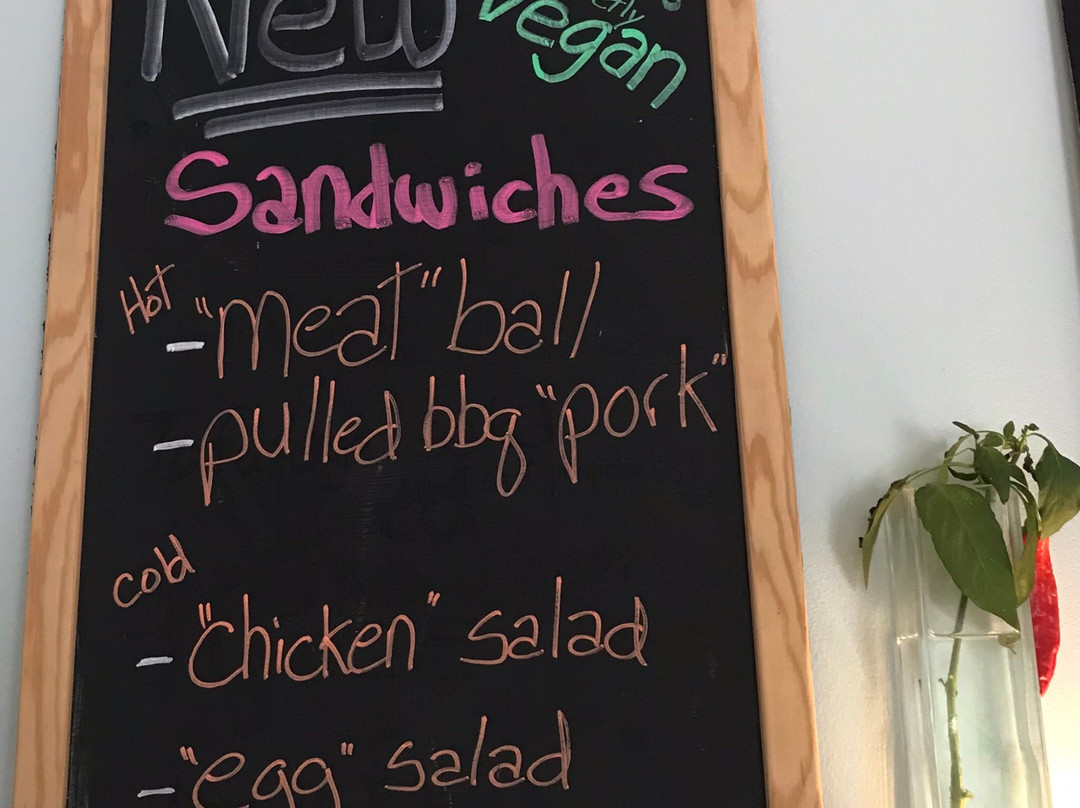 New
vegan
Sandwiches
Hot
- "meat" ball
- pulled bbq "pork"
cold
- "chicken" salad
- "egg" salad